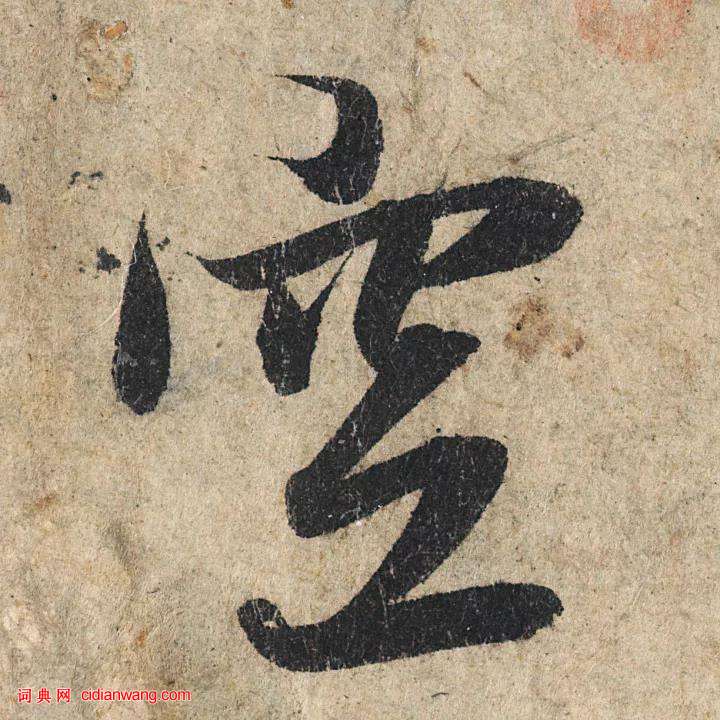 空
词典网 cidianwang.com